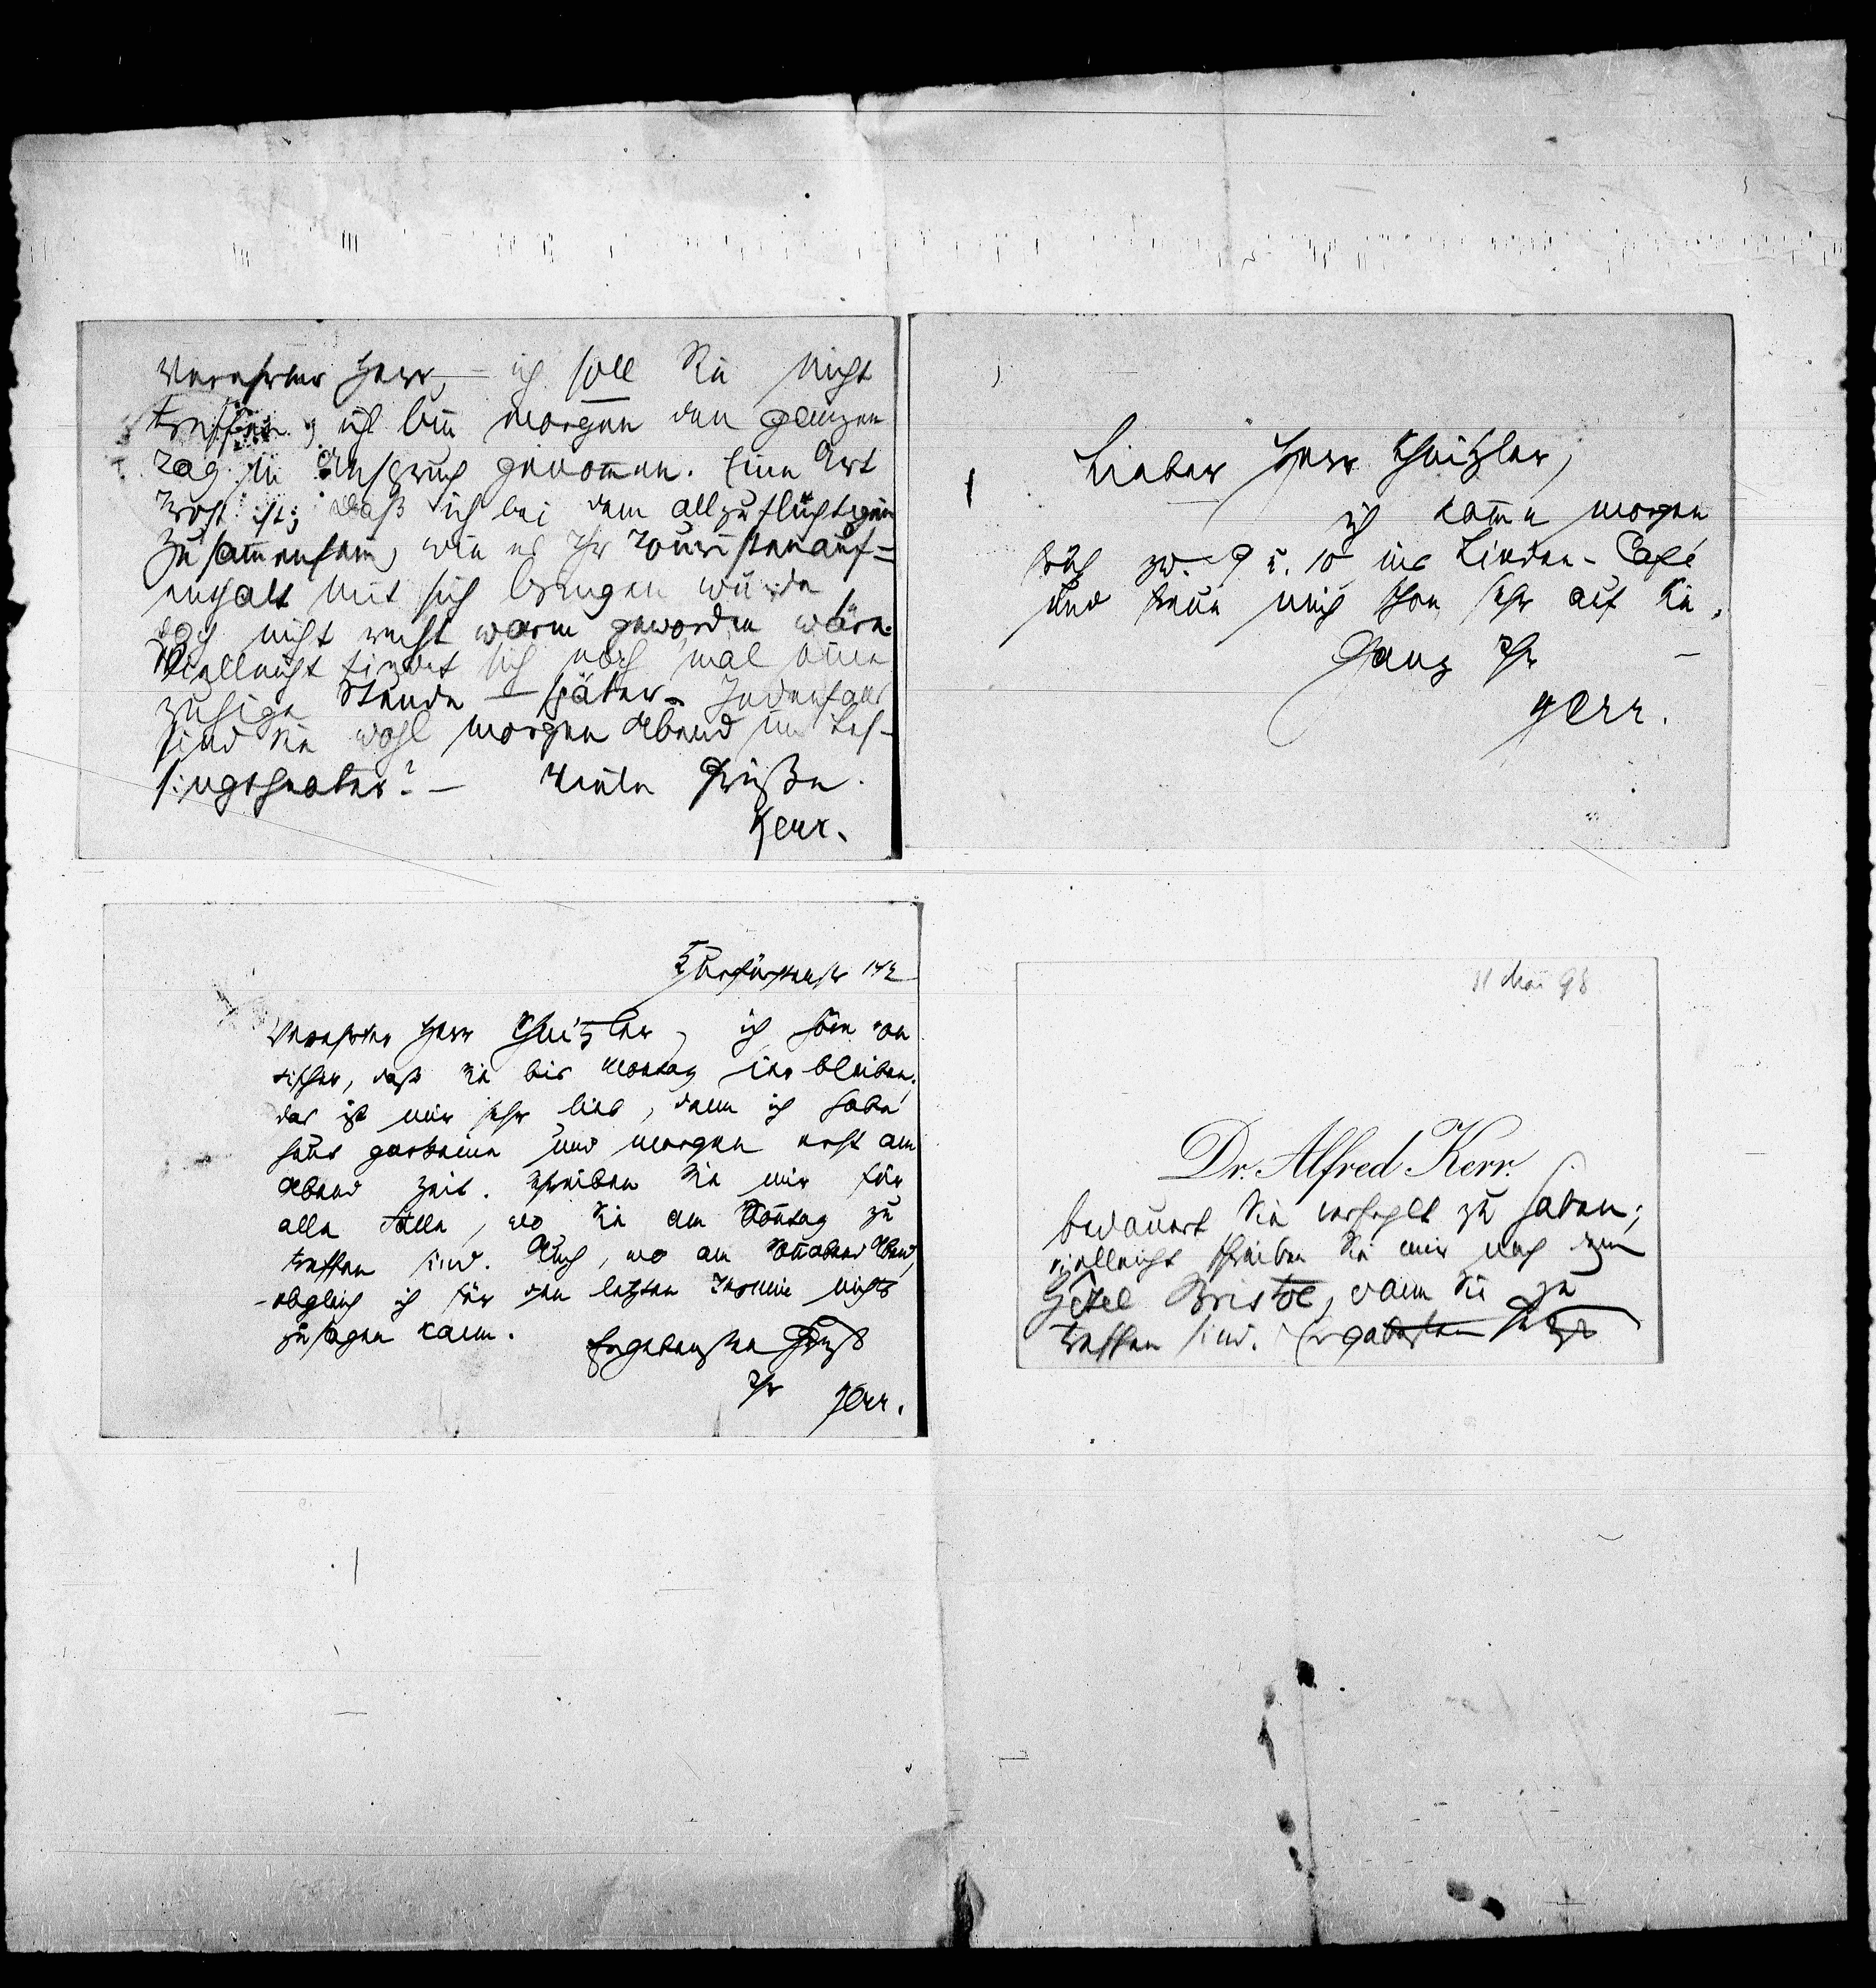 Verehrter Herr, – ich soll Sie nicht
treffen; ich bin morgen den ganzen
Tag in Anspruch genommen. Eine Art
Trost ist; daß ich bei dem allzuflüchtigen
Zusammensein, wie es Ihr Touristenauf=
enthalt mit sich bringen würde
doch nicht recht warm geworden wäre.
Vielleicht findet sich noch mal eine
ruhige Stunde – später. Jedenfalls
sind Sie wohl morgen Abend im Les-
singtheater? – Viele Grüße.
Kerr.
Lieber Herr Schnitzler,
ich komme morgen
früh zw. 9 u. 10 ins Linden-Café
und freue mich schon sehr auf Sie.
Ganz Ihr –
Kerr.
Kurfürstenstr 142
Verehrter Herr Schnitzler, ich höre von
Fischer, daß Sie bis Montag hier bleiben;
das ist mir sehr lieb, denn ich habe
heut gar keine und morgen erst am
Abend Zeit. Schreiben Sie mir für
alle Fälle, wo Sie am Sonntag zu
treffen sind. Auch, wo am Sonnabend Abend,
– obgleich ich für den letzten Termin nichts
zusagen kann.
Ergebensten Gruß
Ihr Kerr.
11 Mai 98
Dr. Alfred Kerr.
bedauert Sie verfehlt zu haben;
vielleicht schreiben Sie mir nach dem
Hotel Bristol, wann Sie zu
treffen sind. Ergebensten Gruß